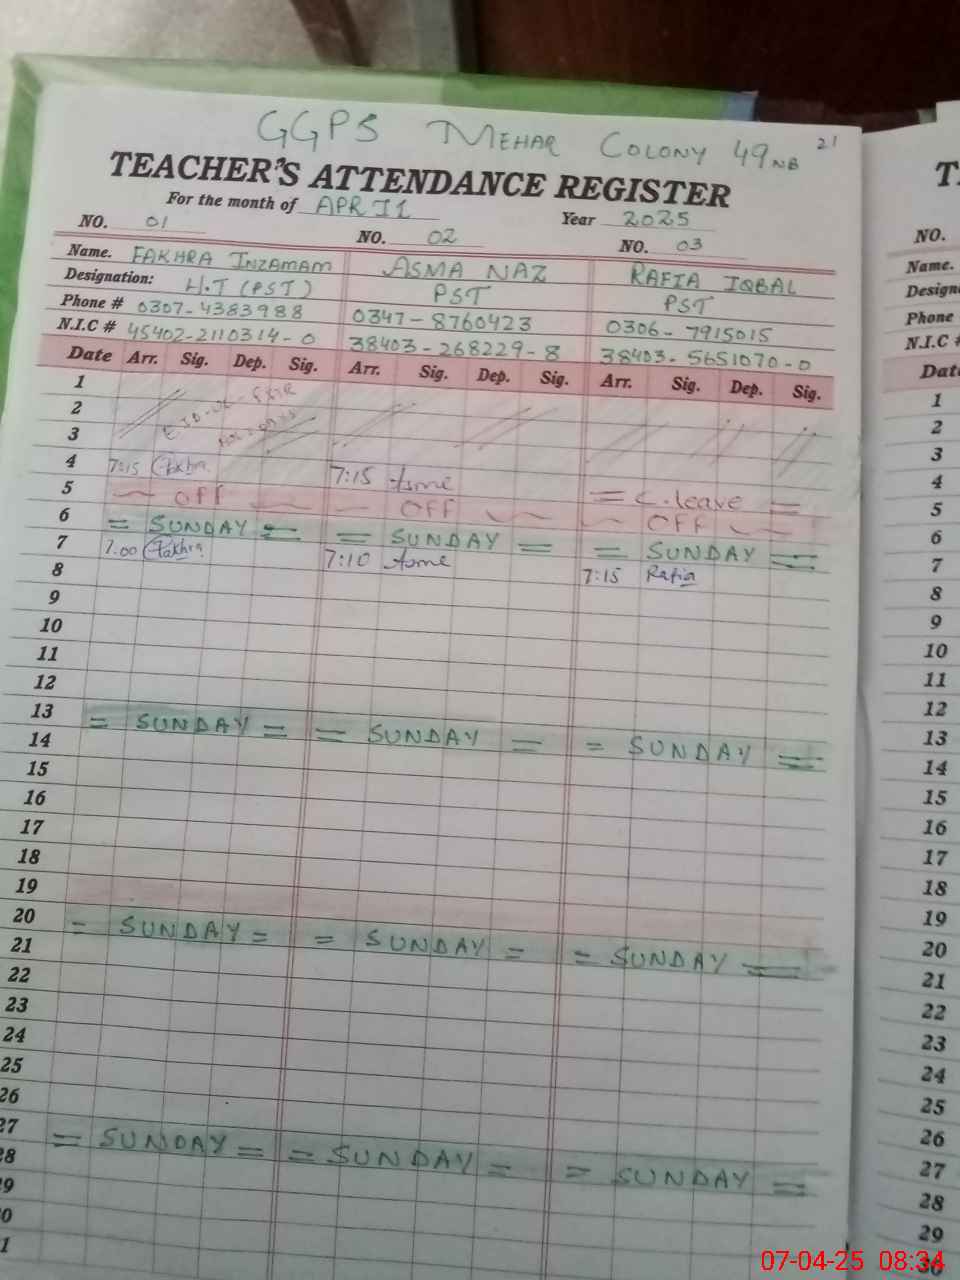 GGPS MEHAR COLONY 49 NB 21
TEACHER'S ATTENDANCE REGISTER
For the month of APRIL Year 2025
NO. 01 NO. 02 NO. 03
Name. FAKHRA INZAMAM ASMA NAZ RAFIA IQBAL
Designation: H.T (PST) PST PST
Phone # 0307-4383988 0347-8760423 0306-7915015
N.I.C # 45402-2110314-0 38403-268229-8 38403-5651070-0
Date Arr. Sig. Dep. Sig. Arr. Sig. Dep. Sig. Arr. Sig. Dep. Sig.
1
2 EID-UL-FITR
3
4 7:15 Fakhra 7:15 Asma = C.leave =
5 OFF OFF OFF
6 = SUNDAY = = SUNDAY = = SUNDAY =
7 7.00 Fakhra 7:10 Asma 7:15 Rafia
8
9
10
11
12
13 = SUNDAY = = SUNDAY = = SUNDAY =
14
15
16
17
18
19
20 = SUNDAY = = SUNDAY = = SUNDAY =
21
22
23
24
25
26
27 = SUNDAY = = SUNDAY = = SUNDAY =
28
9
0
1
NO.
Name.
Phone #
Date
1
2
3
4
5
6
7
8
9
10
11
12
13
14
15
16
17
18
19
20
21
22
23
24
25
26
27
28
29
30
07-04-25 08:34